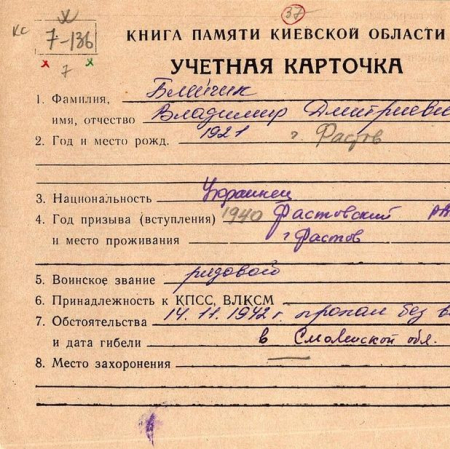 37
КС 7-136
7
КНИГА ПАМЯТИ КИЕВСКОЙ ОБЛАСТИ
УЧЕТНАЯ КАРТОЧКА
1. Фамилия,
имя, отчество Владимир Дмитриеви
2. Год и место рожд. 1921 г. Фастов
3. Национальность Украинец
4. Год призыва (вступления) 1940 Фастовский
и место проживания г. Фастов
5. Воинское звание рядового
6. Принадлежность к КПСС, ВЛКСМ
7. Обстоятельства 14.11.1942 г. пропал без в
и дата гибели в Смоленской обл.
8. Место захоронения —